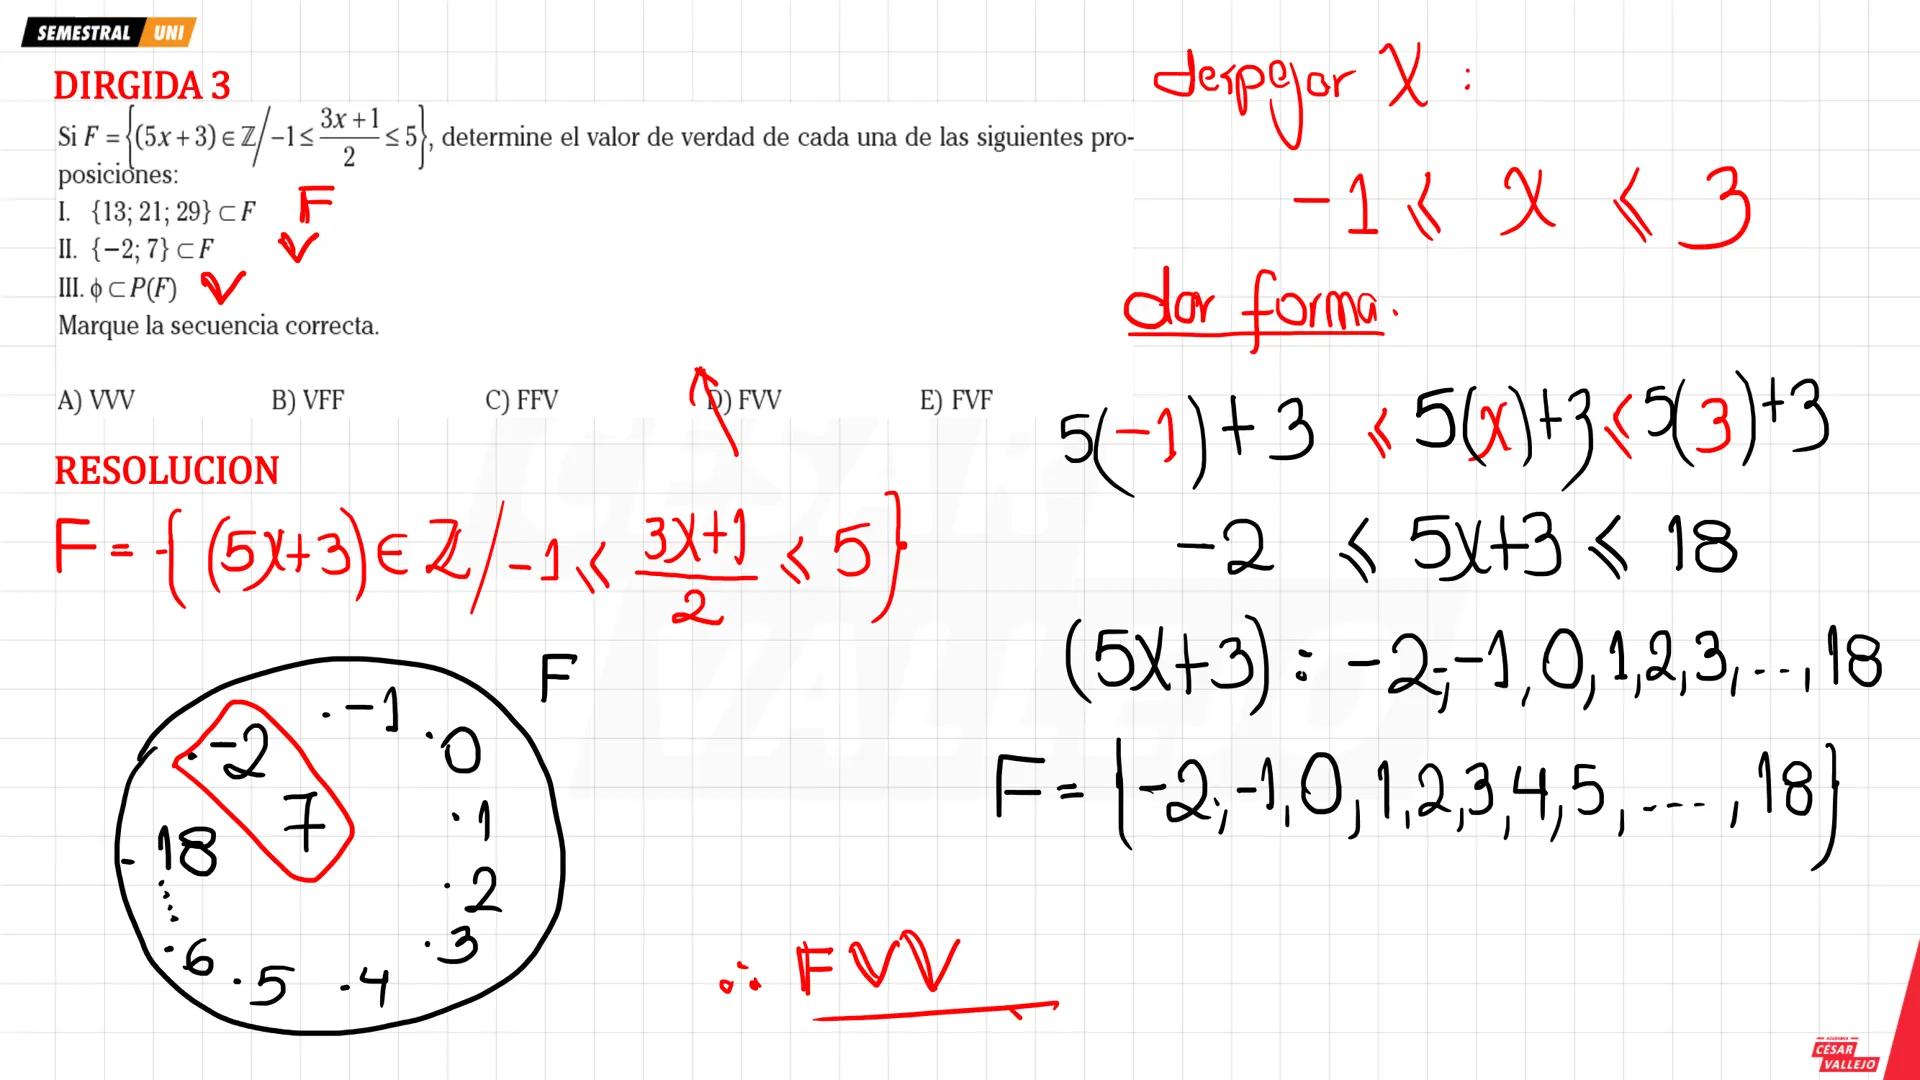 SEMESTRAL UNI
DIRGIDA 3
Si F = {(5x+3) ∈ ℤ / −1 ≤ (3x+1)/2 ≤ 5}, determine el valor de verdad de cada una de las siguientes pro-
posiciones:
I. {13; 21; 29} ⊂ F F
II. {−2; 7} ⊂ F V
III. ϕ ⊂ P(F) V
Marque la secuencia correcta.
A) VVV B) VFF C) FFV D) FVV E) FVF
RESOLUCION
F = {(5x+3) ∈ ℤ / −1 ≤ (3x+1)/2 ≤ 5}
F
.-1
.-2
.0
7
.1
.18
.2
.3
.6
.5
.4
∴ FVV
despejar X :
-1 ≤ x ≤ 3
dar forma.
5(-1)+3 ≤ 5(x)+3 ≤ 5(3)+3
-2 ≤ 5x+3 ≤ 18
(5x+3) : -2;-1,0,1,2,3,...,18
F = {-2;-1,0,1,2,3,4,5,....,18}
ACADEMIA
CÉSAR
VALLEJO